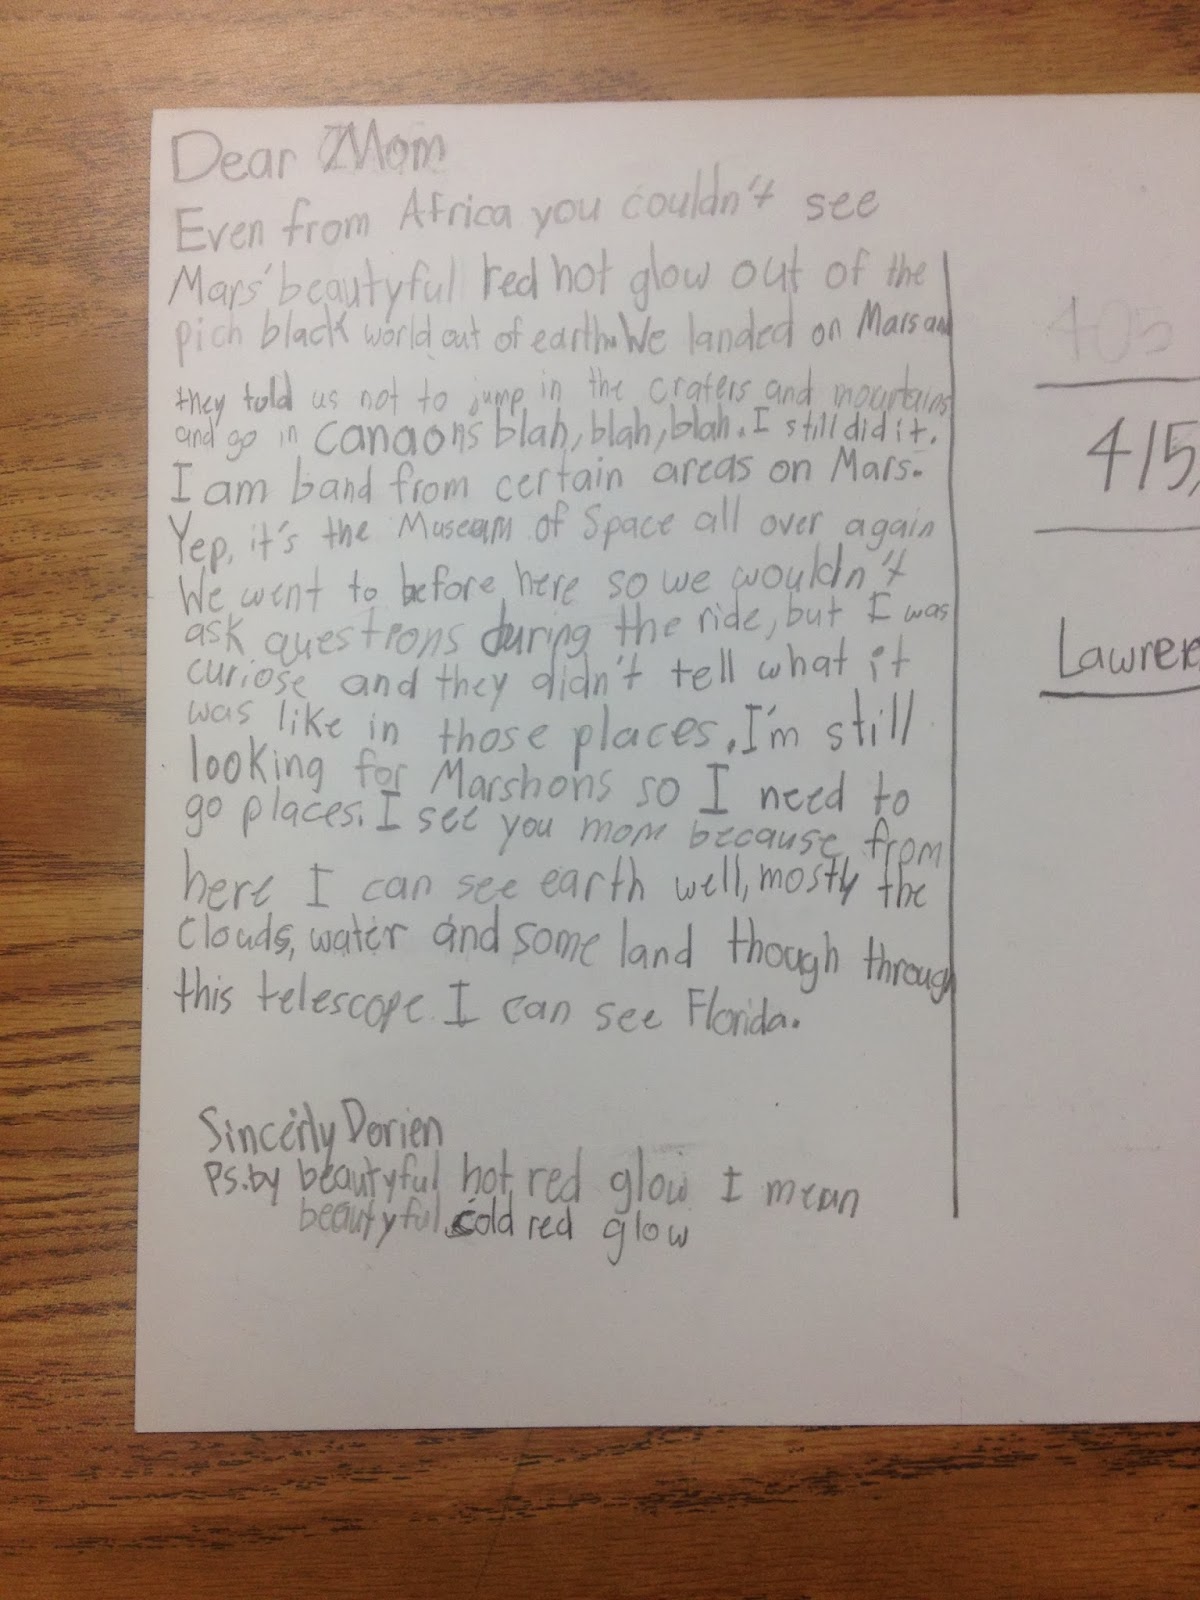 Dear Mom
Even from Africa you couldn't see
Mars' beautyful red hot glow out of the
pich black world out of earth. We landed on Mars and
they told us not to jump in the craters and mountains
and go in canaons blah, blah, blah. I still did it.
I am band from certain areas on Mars.
Yep, it's the Museam of Space all over again
We went to before here so we wouldn't
ask questions during the ride, but I was
curiose and they didn't tell what it
was like in those places. I'm still
looking for Marshons so I need to
go places. I see you mom because from
here I can see earth well, mostly the
clouds, water and some land though through
this telescope I can see Florida.
Sincerly Dorien
Ps. by beautyful hot red glow I mean
beautyful cold red glow
405
415,
Lawren